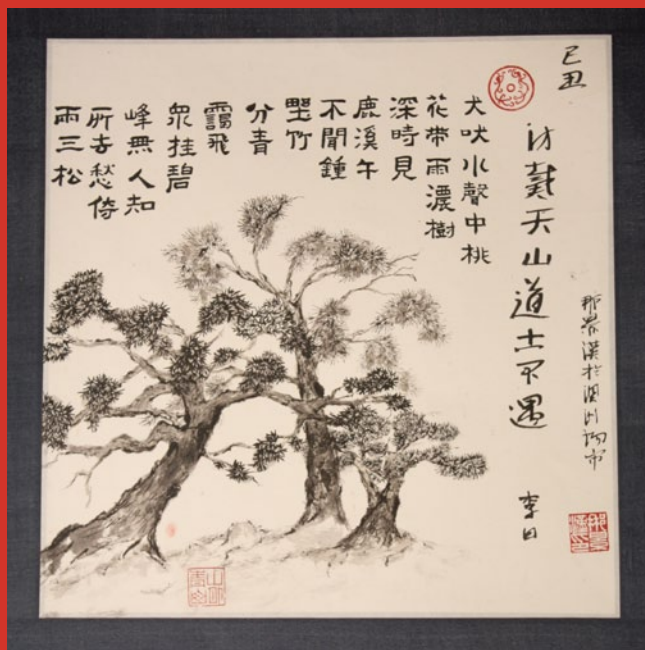 己丑
訪戴天山道士不遇
李白
犬吠水聲中桃
花帶雨濃樹
深時見
鹿溪午
不聞鍾
野竹
分青
靄飛
泉挂碧
峰無人知
所去愁倚
兩三松